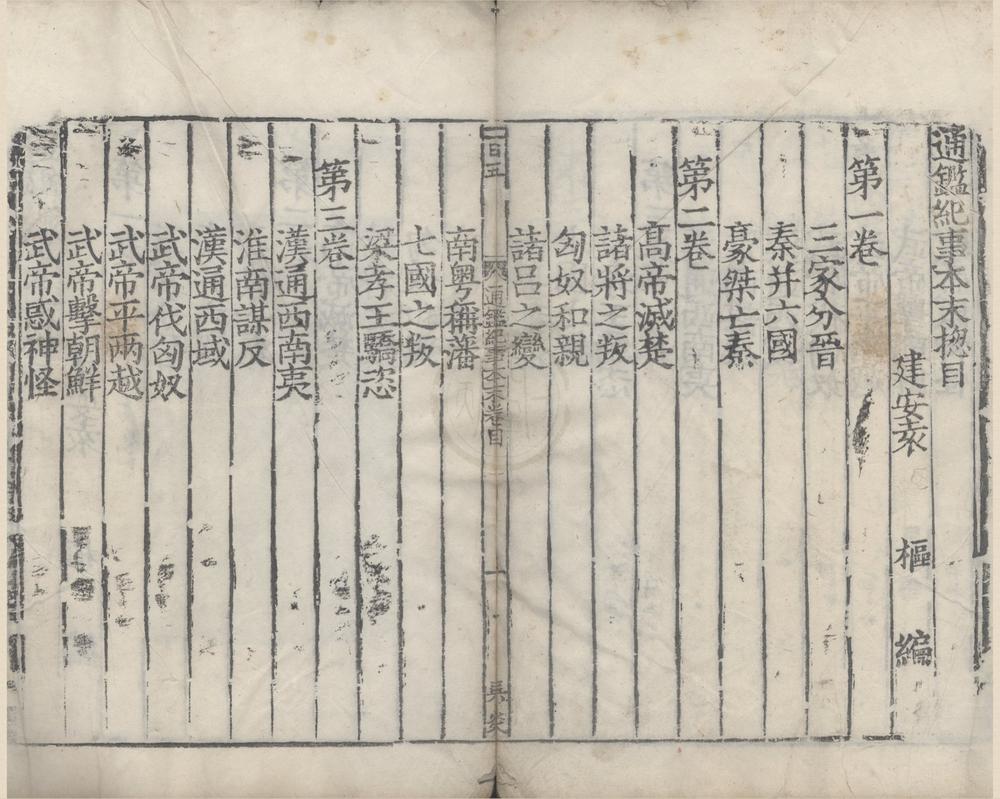 通鑑紀事本末揔目
建安袁　樞　編
第一卷
三家分晉
秦并六國
豪桀亡秦
第二卷
髙帝滅楚
諸將之叛
匈奴和親
諸呂之變
一百五
通鑑紀事本末卷目
一
吳炎
南粤稱藩
七國之叛
梁孝王驕恣
第三卷
漢通西南夷
淮南謀反
漢通西域
武帝伐匈奴
武帝平兩越
武帝擊朝鮮
武帝惑神怪